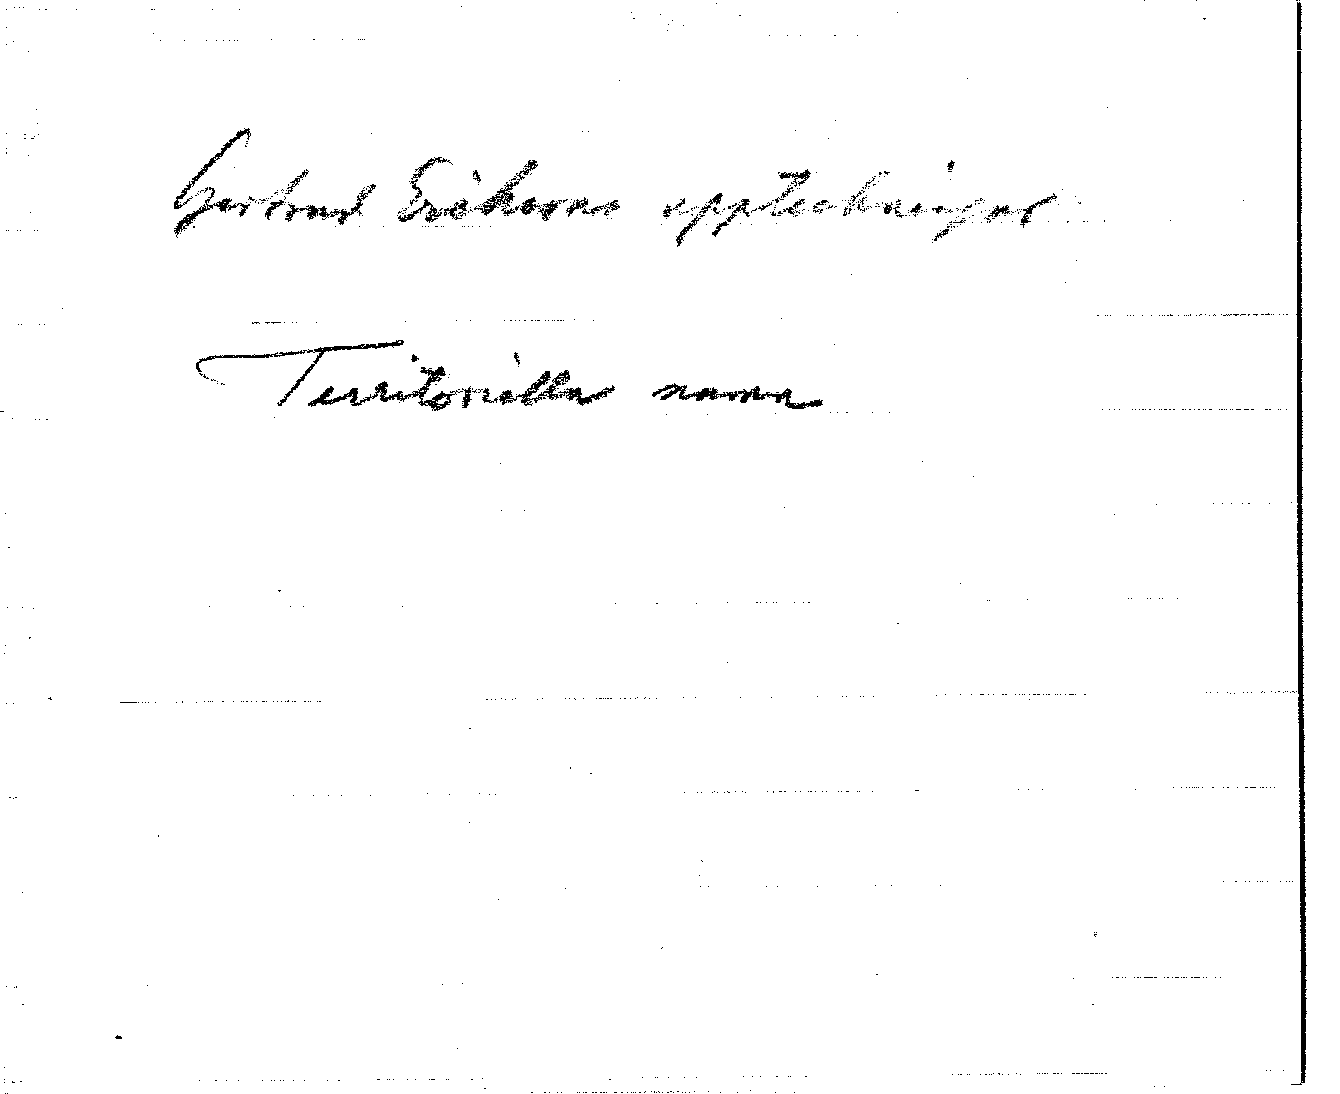 Gertrud Eriksons uppteckningar
Territoriella namn